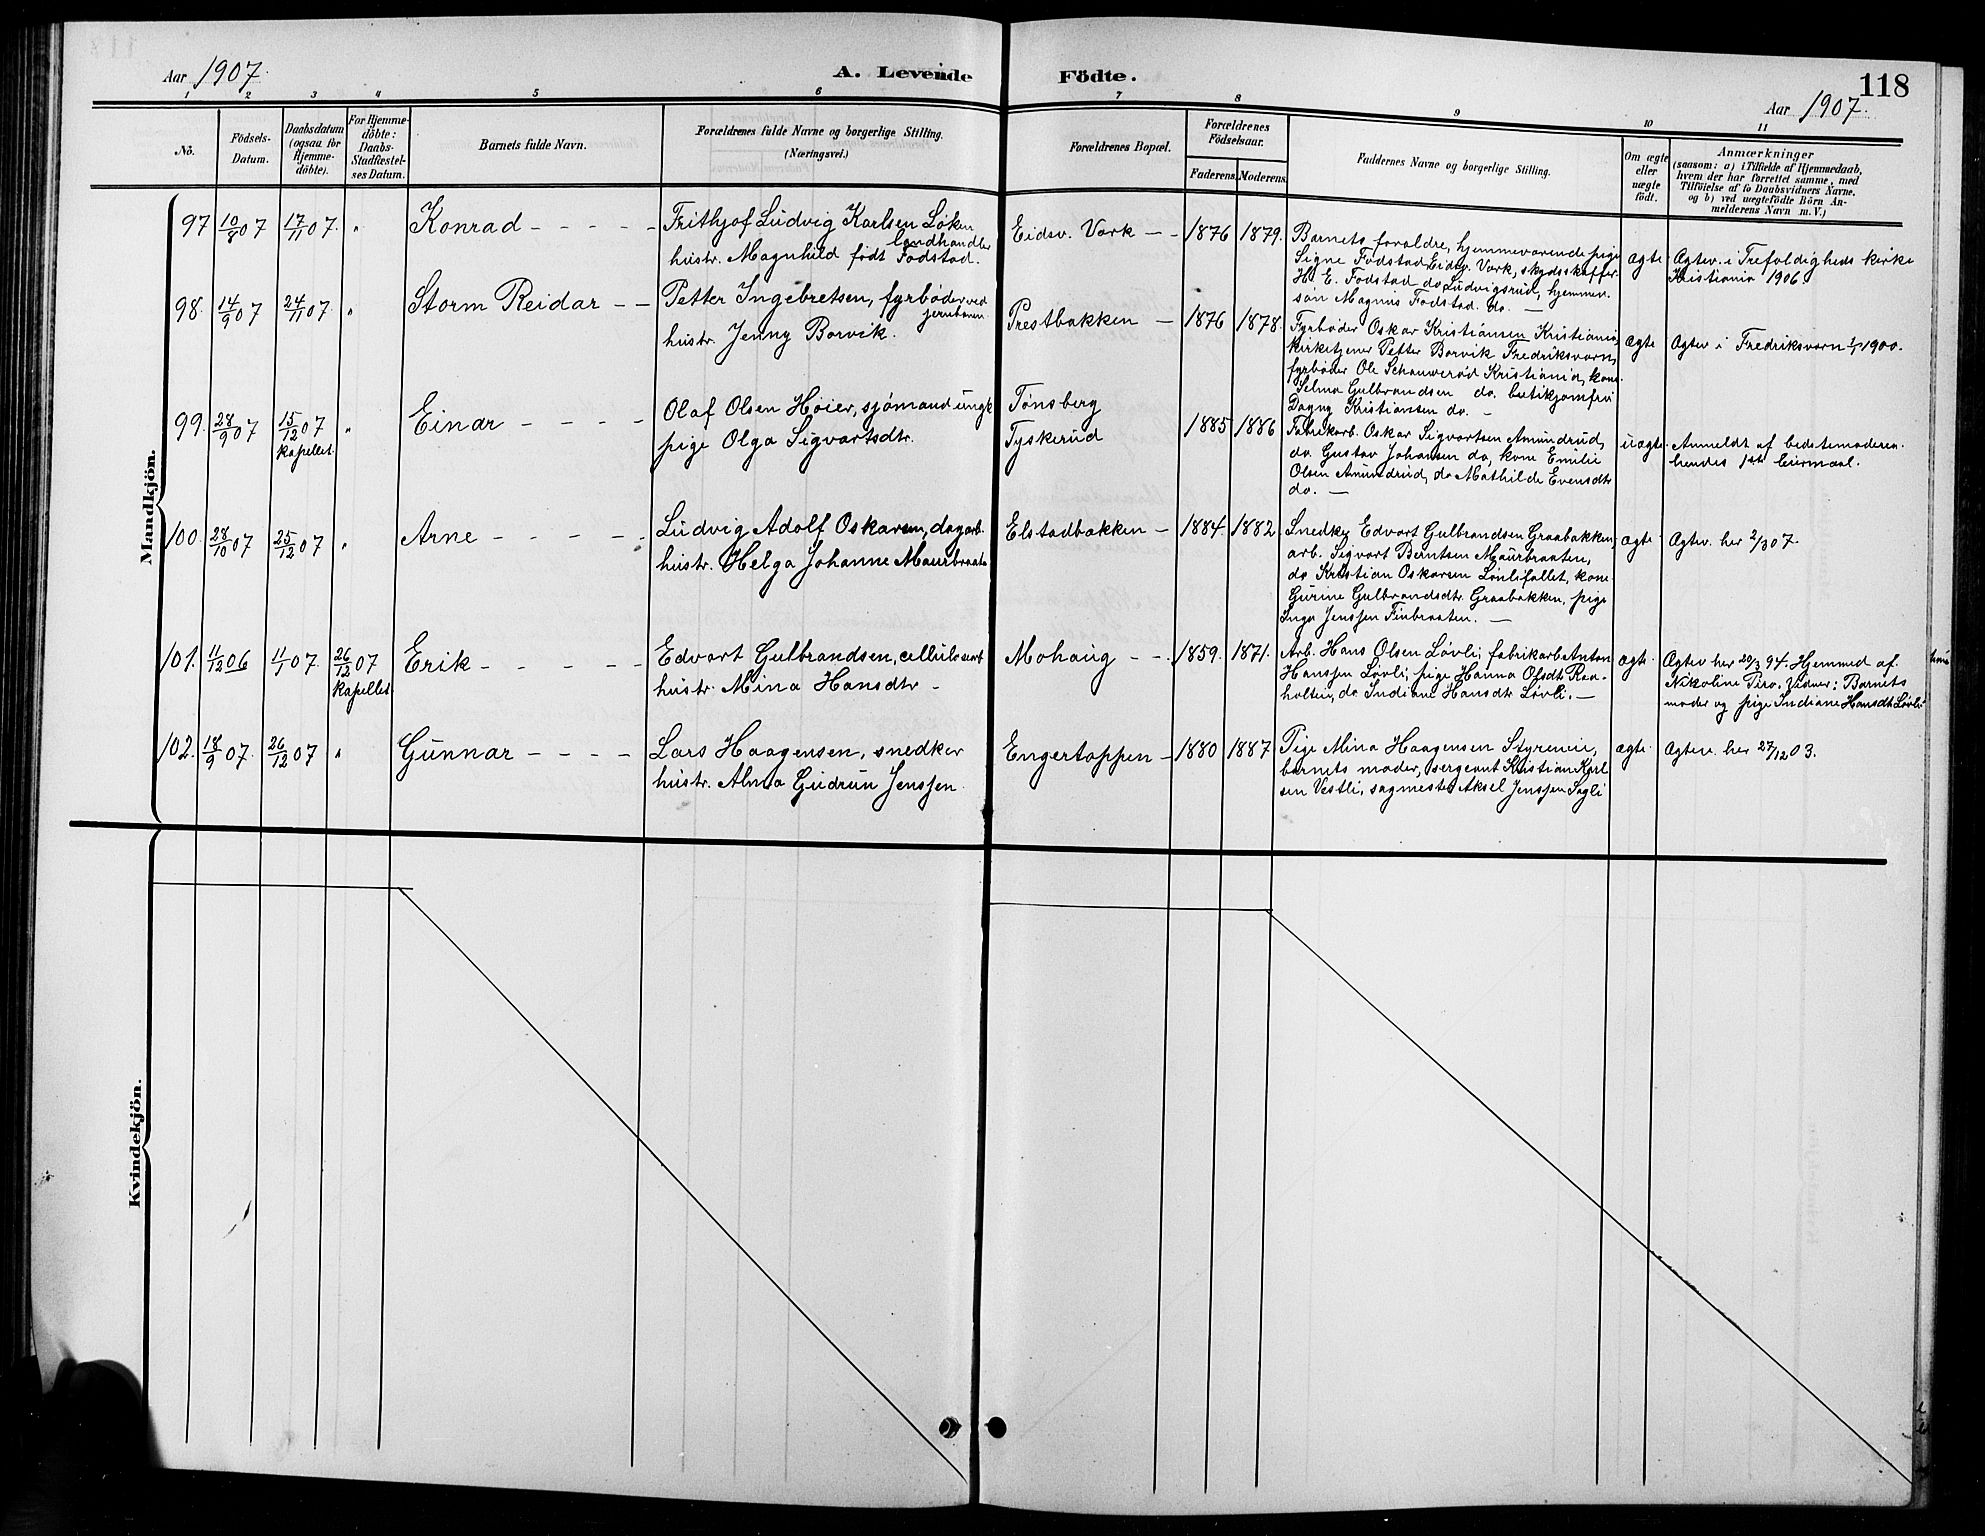 Aar 1907.
A. Levende Födte.
118
Aar 1907.
1 2 3 4 5 6 7 8 9 10 11
No.
Födsels-
Datum.
Daabsdatum
(ogsaa for
Hjemme-
döbte).
For Hjemme-
döbte:
Daabs-
Stadfæstel-
ses Datum.
Barnets fulde Navn.
Forældrenes fulde Navne og borgerlige Stilling.
(Næringsvei.)
Forældrenes Bopæl.
Forældrenes
Födselsaar.
Faderens.
Moderens.
Faddernes Navne og borgerlige Stilling.
Om ægte
eller
uægte
födt.
Anmærkninger
(saasom: a) i Tilfælde af Hjemmedaab,
hvem der har forrettet samme, med
Tilföielse af to Daabsvidners Navne.
og b) ved uegtefödte Börn An-
melderens Navn m. V.)
Mandkjön.
97 10/8 07 17/11 07. " Konrad
Frithjof Ludvig Karlsen Løken
landhandler
hustr. Magnhild født Födstad.
Eidsv. Værk 1876 1879.
Barnets foræld​re, hjemmeværende pige
Signe Födstad Eidsv. Værk, skydsskaffer
H. E. Födstad do Ludvigsrud, hjemmev.
søn Magnus Födstad do. —
ægte
Ægtev. i Trefoldigheds kirke
Kristiania 1906.
98. 14/9 07 24/11 07. " Storm Reidar
Petter Ingebretsen, fyrbøder ved
jernbanen
hustr. Jenny Borvik.
Prestbakken 1876 1878.
Fyrbøder Oskar Kristiansen Kristiania,
kirketjener Petter Borvik Fredriksværn,
fyrbøder Ole Kristiania, kone
Selma Gulbrandsen do, butikjomfru
Dagny Kristiansen do. —
ægte
Ægtev i Fredriksværn 1900.
99. 28/9 07 15/12 07 kapellet. " Einar
Olaf Olsen Høier, sjömand ungk
pige Olga Sigvartsdtr.
Tønsberg
Tyskerud
1885 1886
Fabrikarb. Oskar Sigvartsen Amundrud,
do. Gustav Johansen do, kone Emilie
Olsen Amundrud, do Mathilde Evensdtr
do. —
uægte
Anmeldt af bedstemoderen.
hendes 1ste leiermaal.
100. 28/10 07 25/12 07 " Arne
Ludvig Adolf Oskarsen, dagarb.
hustr. Helga Johanne Maurbraate
Elstadbakken 1884. 1882
Snedker Edvart Gulbrandsen Graabakken,
arb. Sigvart Berntsen Maurbraaten,
do Kristian Oskarsen Lønlifallet, kone
Gurine Gulbrandsdtr. Graabakken, pige
Inga Jenssen Finbraaten. —
ægte
Ægtev. her 2/3 07.
101. 11/12 06 11/1 07. 26/12 07 kapellet Erik
Edvart Gulbrandsen, cellulosearb
hustr. Mina Hansdtr
Mohaug 1859. 1871.
Arb. Hans Olsen Løvli, fabrikarb Anton
Hanssen Løvli, pige Hanna Olsdtr. Rea-
holten, do Indiane Hansdtr Løvli. —
ægte
Ægtev her 20/3 94. Hjemmed af
Nikoline Piro. Vidner: Barnets
moder og pige Indiane Hansdtr Løvli
102. 18/9 07. 26/12 07 " Gunnar
Lars Haagensen, snedker
hustr. Alma Gudrun Jenssen.
Engertoppen 1880 1887
Pige Mina Haagensen Styreniie,
barnets moder, sergeant Kristian Karl
sen Vestli, sagmester Aksel Jenssen Sagli
ægte
Ægtev. her 27/12 03.
Kvindekjön.